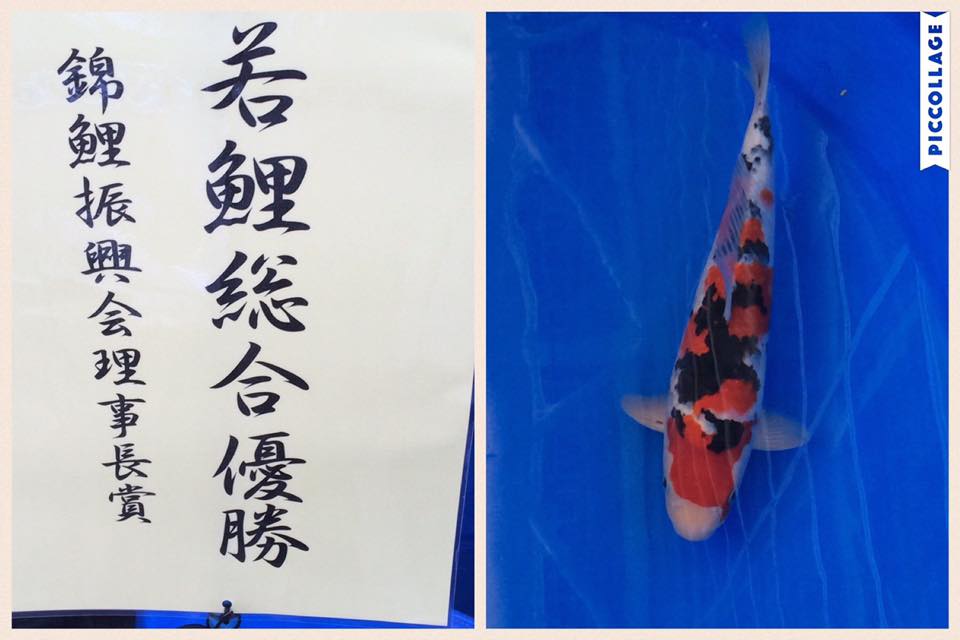 若鯉総合優勝
錦鯉振興会理事長賞
PICCOLLAGE